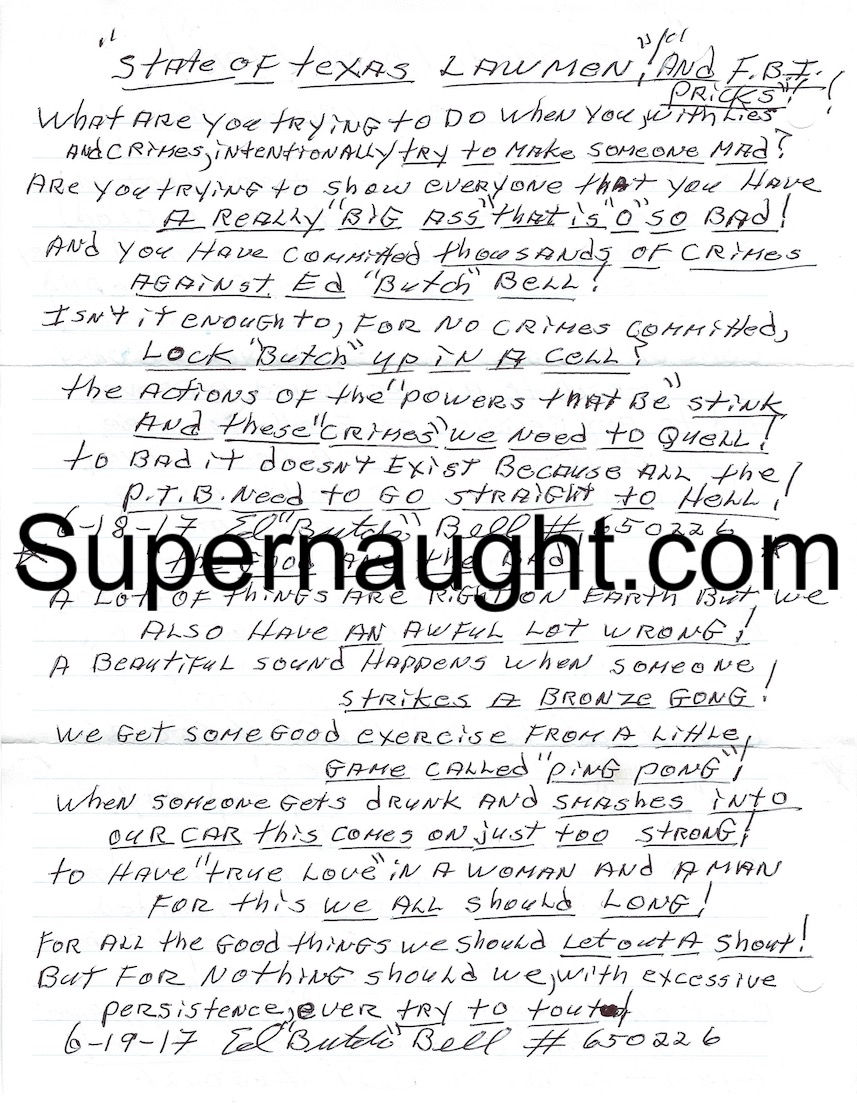 "State of Texas Lawmen," And F.B.I.
Pricks"!
What are you trying to do when you, with lies
and crimes, intentionally try to make someone mad?
Are you trying to show everyone that you have
a really "big ass" that is "o" so bad!
And you have committed thousands of crimes
against Ed "Butch" Bell!
Isn't it enough to, for no crimes committed,
lock "Butch" up in a cell?
The actions of the "powers that be" stink
and these "crimes" we need to quell!
To bad it doesn't exist because all the
P.T.B. need to go straight to Hell!
6-18-17 Ed "Butch" Bell # 650226
Supernaught.com
* "The Good and the Bad" *
A lot of things are right on Earth but we
also have an awful lot wrong!
A beautiful sound happens when someone
strikes a bronze gong!
We get some good exercise from a little,
game called "ping pong"!
When someone gets drunk and smashes into
our car this comes on just too strong!
To have "true love" in a woman and a man
for this we all should long!
For all the good things we should let out a shout!
But for nothing should we, with excessive
persistence, ever try to tout
6-19-17 Ed "Butch" Bell # 650226